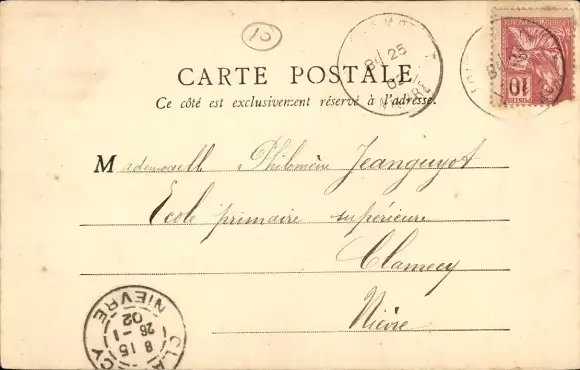 15
8 11 25
02
NIÈVRE
10
POSTES
CARTE POSTALE
Ce côté est exclusivement réservé à l'adresse.
Mademoiselle Philomène Jeanguyot
Ecole primaire supérieure
Clamecy
Nièvre
CLAMECY
8 15
26 - 1
02
NIEVRE